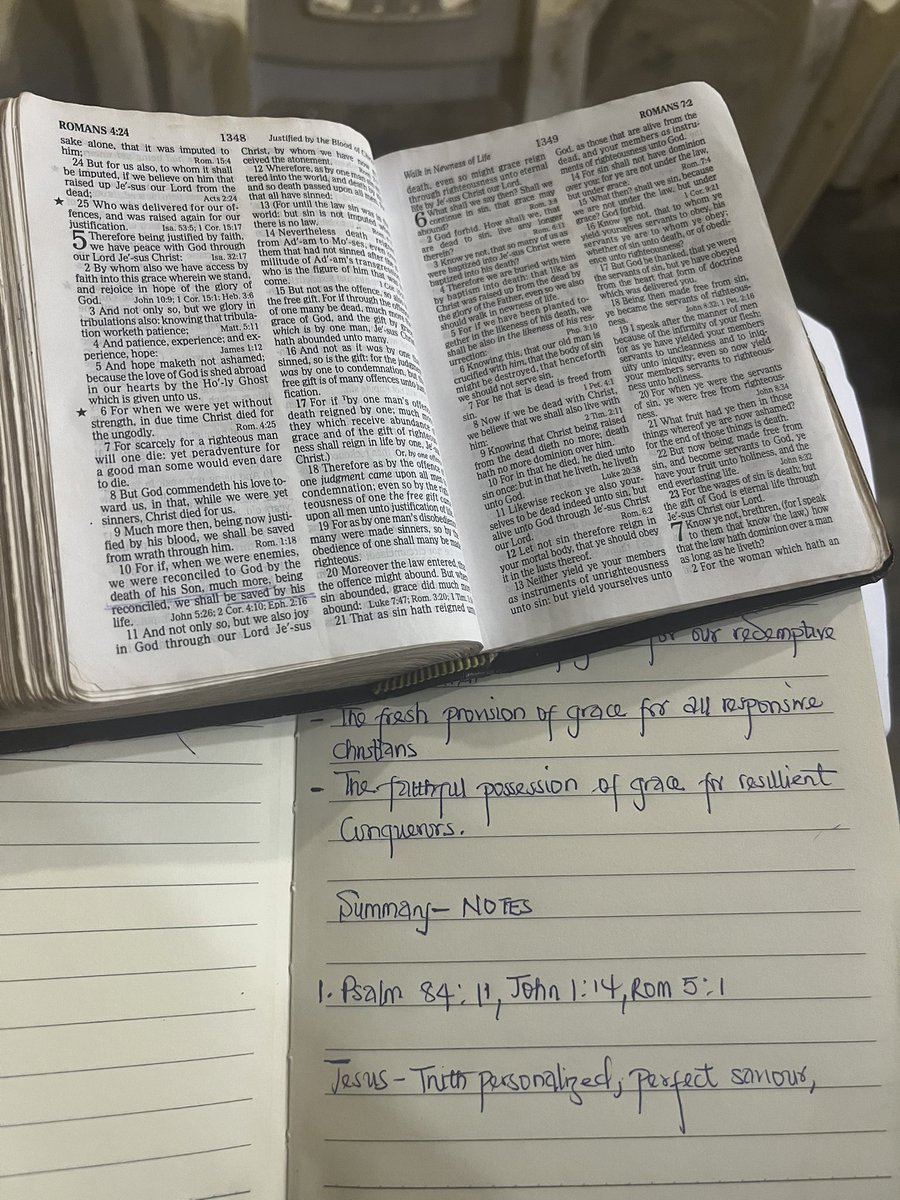 ROMANS 4:24
1348
Justified by the Blood of
sake alone, that it was imputed to
him;
Rom. 15:4
24 But for us also, to whom it shall
be imputed, if we believe on him that
raised up Je′-sus our Lord from the
dead;
Acts 2:24
★ 25 Who was delivered for our of-
fences, and was raised again for our
justification.
Isa. 53:5; 1 Cor. 15:17
5 Therefore being justified by faith,
we have peace with God through
our Lord Je′-sus Christ:
Isa. 32:17
2 By whom also we have access by
faith into this grace wherein we stand,
and rejoice in hope of the glory of
God.
John 10:9; 1 Cor. 15:1; Heb. 3:6
3 And not only so, but we glory in
tribulations also: knowing that tribula-
tion worketh patience;
Matt. 5:11
4 And patience, experience; and ex-
perience, hope:
James 1:12
5 And hope maketh not ashamed;
because the love of God is shed abroad
in our hearts by the Ho′-ly Ghost
which is given unto us.
★ 6 For when we were yet without
strength, in due time Christ died for
the ungodly.
Rom. 4:25
7 For scarcely for a righteous man
will one die: yet peradventure for
a good man some would even dare
to die.
8 But God commendeth his love to-
ward us, in that, while we were yet
sinners, Christ died for us.
9 Much more then, being now justi-
fied by his blood, we shall be saved
from wrath through him.
Rom. 1:18
10 For if, when we were enemies,
we were reconciled to God by the
death of his Son, much more, being
reconciled, we shall be saved by his
life.
John 5:26; 2 Cor. 4:10; Eph. 2:16
11 And not only so, but we also joy
in God through our Lord Je′-sus
Christ, by whom we have now
ceived the atonement.
12 Wherefore, as by one man
tered into the world, and death by
and so death passed upon all men
that all have sinned:
13 (For until the law sin was in
world: but sin is not imputed
there is no law.
14 Nevertheless death reigned
from Ad′-am to Mo′-ses, even
them that had not sinned after the
militude of Ad′-am's transgression
who is the figure of him that
come.
15 But not as the offence, so also
the free gift. For if through the offence
of one many be dead, much more
grace of God, and the gift by grace
which is by one man, Je′-sus Christ
hath abounded unto many.
16 And not as it was by one that
sinned, so is the gift: for the judgment
was by one to condemnation, but the
free gift is of many offences unto
fication.
17 For if by one man's offence
death reigned by one; much more
they which receive abundance of
grace and of the gift of righteous-
ness shall reign in life by one, Je′-sus
Christ.)
Or, by one
18 Therefore as by the offence
one judgment came upon all men
condemnation; even so by the righ-
teousness of one the free gift came
upon all men unto justification of
19 For as by one man's disobedience
many were made sinners, so by
obedience of one shall many be made
righteous.
20 Moreover the law entered, that
the offence might abound. But where
sin abounded, grace did much more
abound:
Luke 7:47; Rom. 3:20; 1 Tim. 1
21 That as sin hath reigned unto
Walk in Newness of Life
1349
ROMANS 7:2
death, even so might grace reign
through righteousness unto eternal
life by Je′-sus Christ our Lord.
6 What shall we say then? Shall we
continue in sin, that grace may
abound?
Rom. 3:8
2 God forbid. How shall we, that
are dead to sin, live any longer
therein?
Rom. 6:11
3 Know ye not, that so many of us as
were baptized into Je′-sus Christ were
baptized into his death?
4 Therefore we are buried with him
by baptism into death: that like as
Christ was raised up from the dead by
the glory of the Father, even so we also
should walk in newness of life.
5 For if we have been planted to-
gether in the likeness of his death, we
shall be also in the likeness of his res-
urrection:
Php. 3:10
6 Knowing this, that our old man is
crucified with him, that the body of sin
might be destroyed, that henceforth
we should not serve sin.
7 For he that is dead is freed from
sin.
1 Pet. 4:1
8 Now if we be dead with Christ,
we believe that we shall also live with
him:
2 Tim. 2:11
9 Knowing that Christ being raised
from the dead dieth no more; death
hath no more dominion over him.
10 For in that he died, he died unto
sin once: but in that he liveth, he liveth
unto God.
Luke 20:38
11 Likewise reckon ye also your-
selves to be dead indeed unto sin, but
alive unto God through Je′-sus Christ
our Lord.
Rom. 6:2
12 Let not sin therefore reign in
your mortal body, that ye should obey
it in the lusts thereof.
13 Neither yield ye your members
as instruments of unrighteousness
unto sin: but yield yourselves unto
God, as those that are alive from the
dead, and your members as instru-
ments of righteousness unto God.
14 For sin shall not have dominion
over you: for ye are not under the law,
but under grace.
Rom. 7:4
15 What then? shall we sin, because
we are not under the law, but under
grace? God forbid.
1 Cor. 9:21
16 Know ye not, that to whom ye
yield yourselves servants to obey, his
servants ye are to whom ye obey;
whether of sin unto death, or of obedi-
ence unto righteousness?
17 But God be thanked, that ye were
the servants of sin, but ye have obeyed
from the heart that form of doctrine
which was delivered you.
18 Being then made free from sin,
ye became the servants of righteous-
ness.
John 8:32; 1 Pet. 2:16
19 I speak after the manner of men
because of the infirmity of your flesh:
for as ye have yielded your members
servants to uncleanness and to iniq-
uity unto iniquity; even so now yield
your members servants to righteous-
ness unto holiness.
20 For when ye were the servants
of sin, ye were free from righteous-
ness.
John 8:34
21 What fruit had ye then in those
things whereof ye are now ashamed?
for the end of those things is death.
22 But now being made free from
sin, and become servants to God, ye
have your fruit unto holiness, and the
end everlasting life.
John 8:32
23 For the wages of sin is death; but
the gift of God is eternal life through
Je′-sus Christ our Lord.
7 Know ye not, brethren, (for I speak
to them that know the law,) how
that the law hath dominion over a man
as long as he liveth?
2 For the woman which hath an
for our redemptive
- The fresh provision of grace for all responsive
Christians
- The faithful possession of grace for resillient
Conquerors.
Summary - NOTES
1. Psalm 84:11, John 1:14, Rom 5:1
Jesus - Truth personalized, perfect saviour,